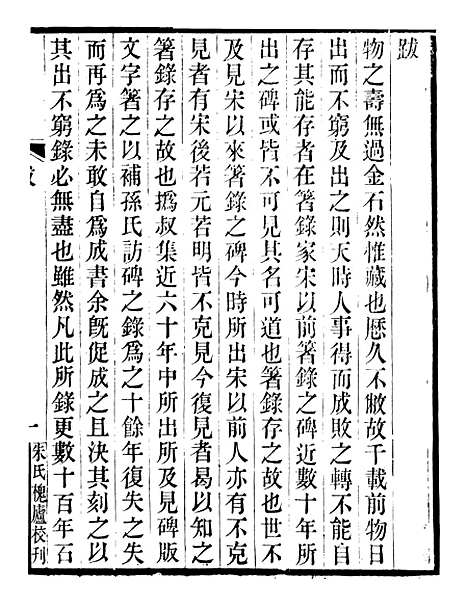 跋
物之壽無過金石然惟藏也歷久不敝故千載前物日
出而不窮及出之則天時人事得而成敗之轉不能自
存其能存者在箸錄家宋以前箸錄之碑近數十年所
出之碑或皆不可見其名可道也箸錄存之故也世不
及見宋以來箸錄之碑今時所出宋以前人亦有不克
見者有宋後若元若明皆不克見今復見者曷以知之
箸錄存之故也撝叔集近六十年中所出所及見碑版
文字箸之以補孫氏訪碑之錄爲之十餘年復失之失
而再爲之未敢自爲成書余旣促成之且決其刻之以
其出不窮錄必無盡也雖然凡此所錄更數十百年石
跋
一
朱氏槐廬校刊